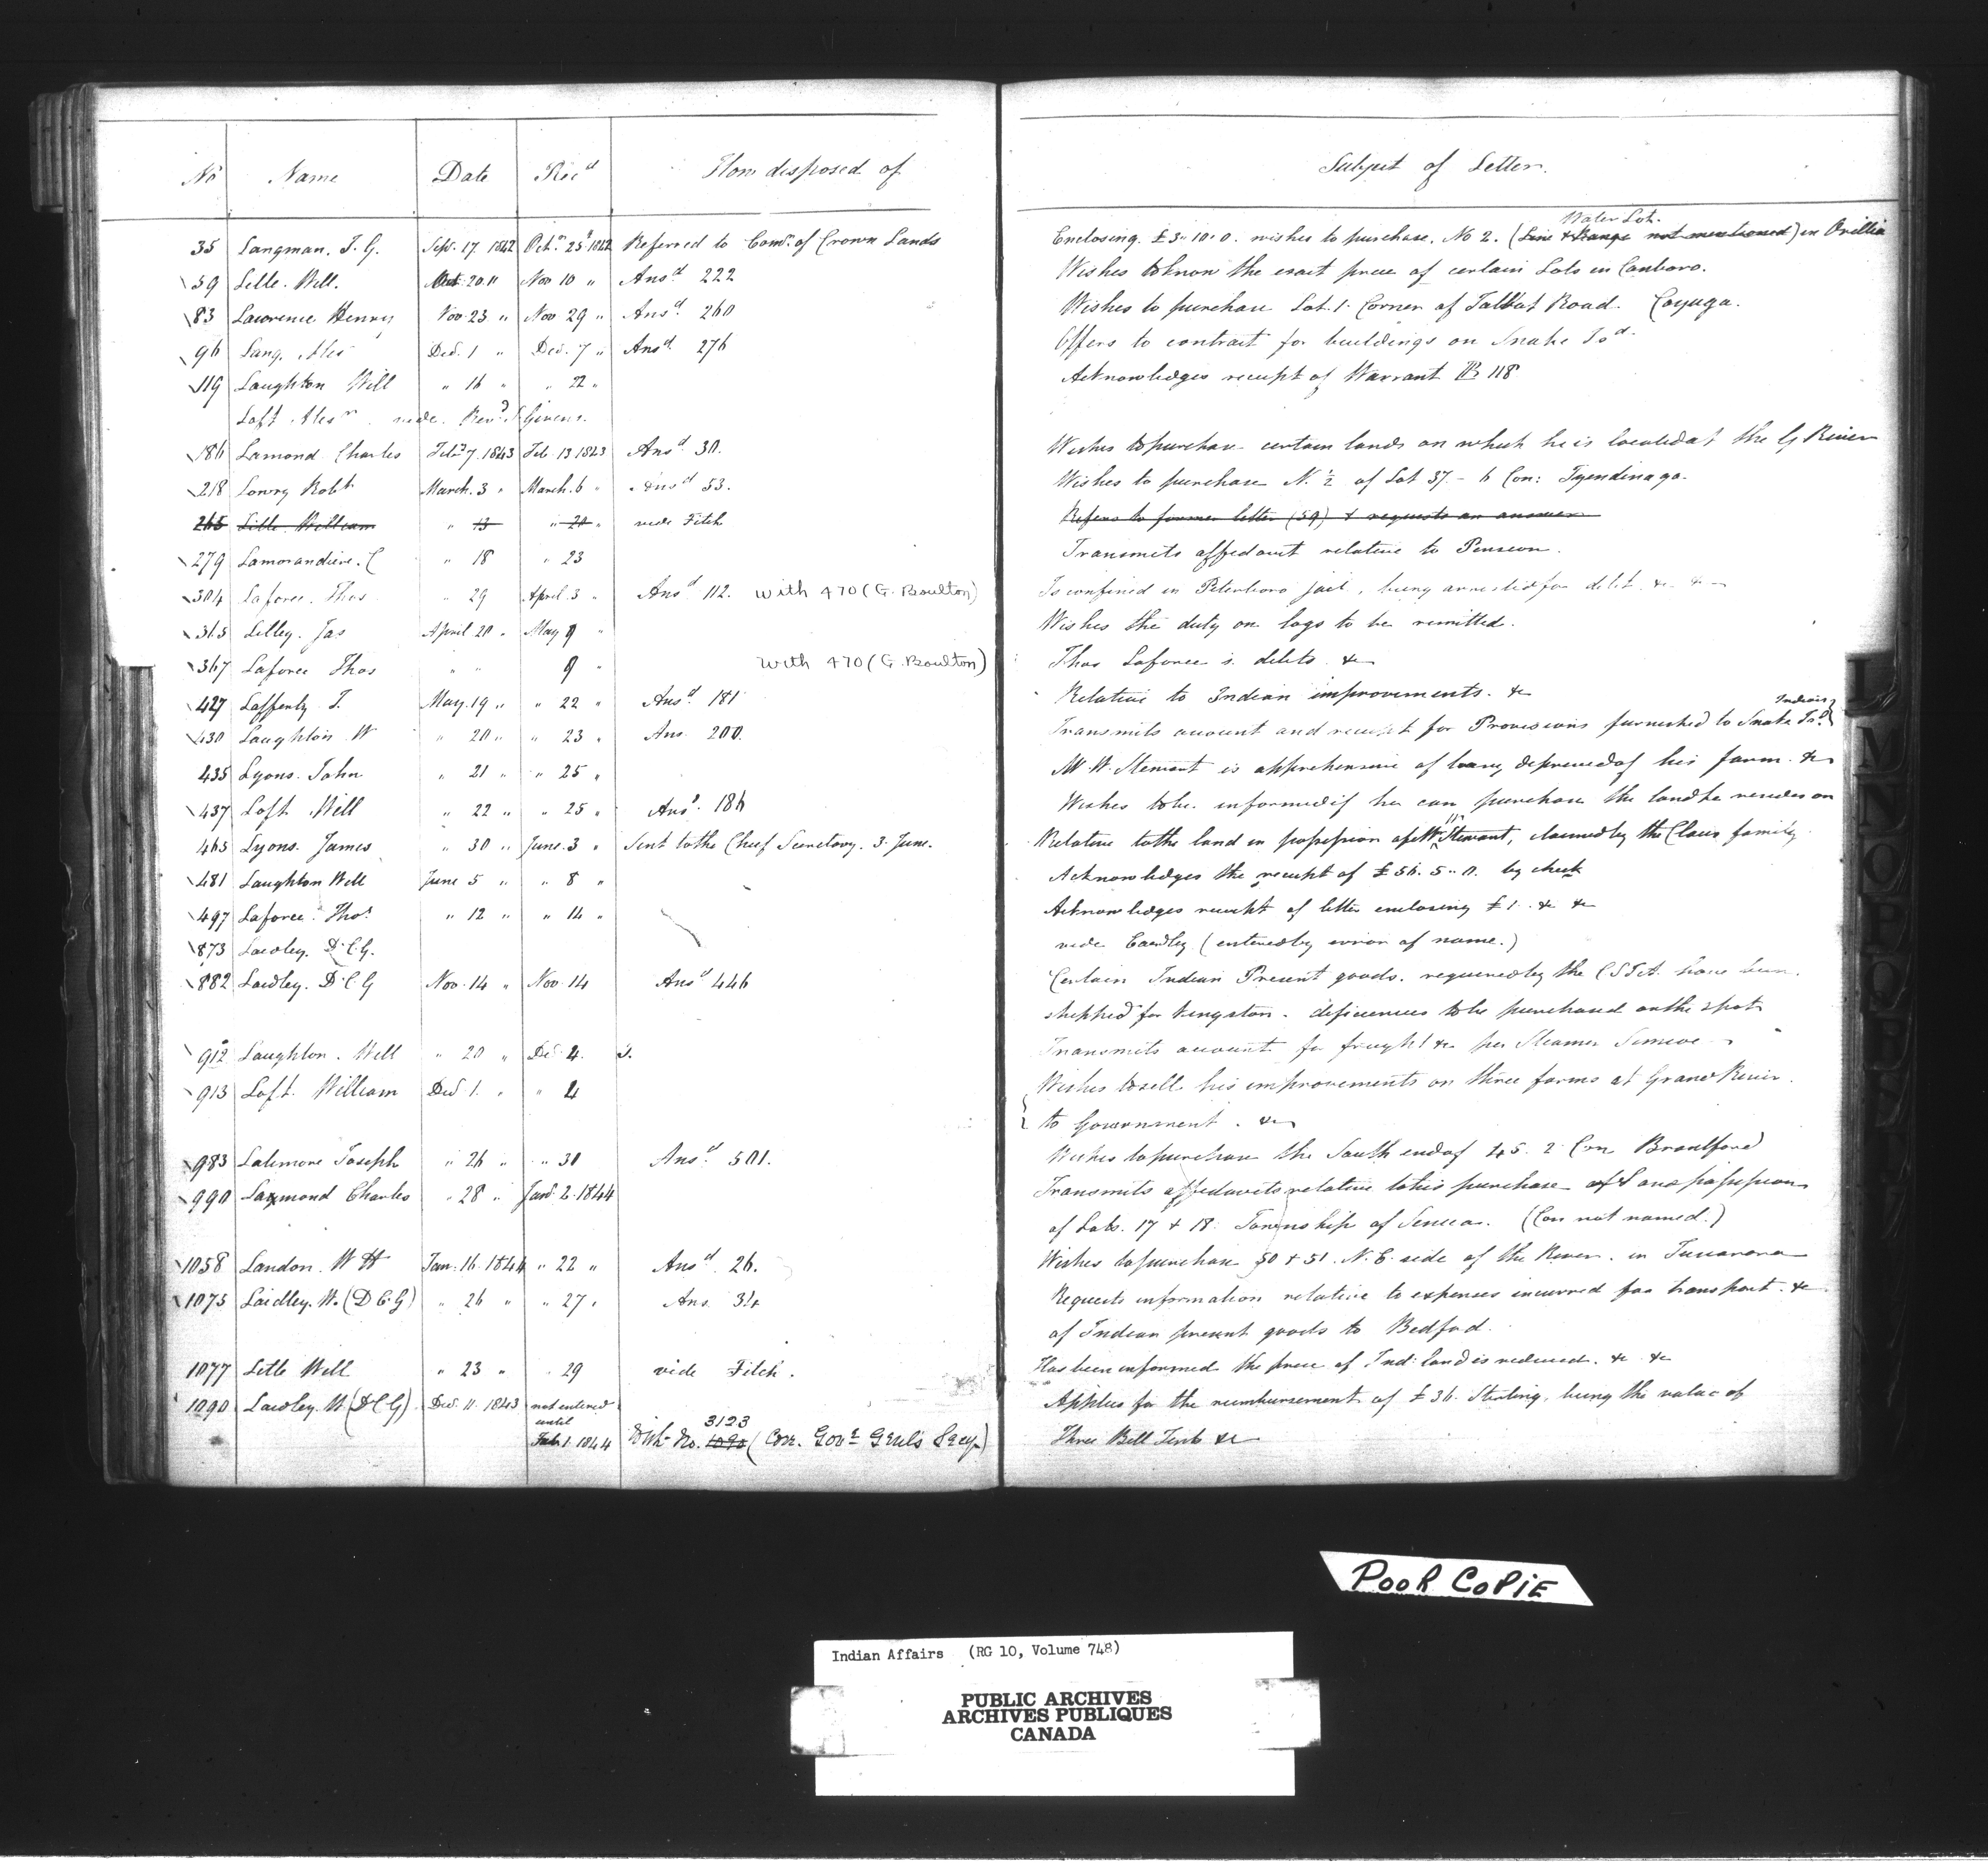 No Name Date Rec'd How disposed of Subject of Letter.
35 Langman. J. G. Sept. 17 1842 Oct. 25 1842 Referred to Com'r of Crown Lands Enclosing £3.. 10. 0. wishes to purchase. No 2. (Line & Range not mentioned) Water Lot. in Orillia
59 Lille. Will. Oct. 20 " Nov 10 " Ans'd 222 Wishes to know the exact price of certain Lots in Canboro.
83 Lawrence Henry Nov 23 " Nov 29 " Ans'd 260 Wishes to purchase Lot 1. Corner of Talbot Road. Cayuga.
96 Lang. Alex Dec. 1 " Dec. 7 " Ans'd 276 Offers to contract for buildings on Snake Is'd
119 Laughton Will " 16 " " 22 " Acknowledges receipt of Warrant 118
Loft Alex'r vide Rev'd S. Givens.
186 Lamond Charles Feb'y 7. 1843 Feb. 13 1843 Ans'd 30. Wishes to purchase certain lands on which he is located at the G River
218 Lowry Rob't March. 3 " March. 6 " Ans'd 53. Wishes to purchase N. ½ of Lot 37 - 6 Con: Tyendinaga.
265 Lille William " 13 " 20 " vide Fitch Refers to former letter (59) & requests an answer
279 Lamorandiere. C " 18 " 23 Transmits affidavit relative to Pension.
304 Laforce. Thos " 29 April. 3 " Ans'd 112. with 470 (G. Boulton) Is confined in Peterboro jail, being arrested for debt. &c &c
315 Lilley. Jas April 20 " May 9 " Wishes the duty on logs to be remitted.
367 Laforce Thos " " 9 " with 470 (G. Boulton) Thos Laforce's debts. &c
427 Lafferty J. May. 19 " " 22 " Ans'd 181 Relative to Indian improvements. &c
430 Laughton W " 20 " " 23 " Ans. 200. Transmits account and receipt for Provisions furnished to Snake Is'd Indians
435 Lyons. John " 21 " " 25 " W. Stewart is apprehensive of being deprived of his farm. &c
437 Loft Will " 22 " " 25 " Ans'd. 186 Wishes to be informed if he can purchase the land he resides on
465 Lyons. James " 30 " June. 3 " Sent to the Chief Secretary. 3. June. Relative to the land in possession of W. Stewart, claimed by the Claus family
481 Laughton Will June 5 " " 8 " Acknowledges the receipt of £56. 5.. 0. by check
497 Laforce. Tho's " 12 " " 14 " Acknowledges receipt of letter enclosing £1. &c &c
873 Laidley. D.C.G. vide Eardley (entered by error of name.)
882 Laidley. D.C.G Nov. 14 " Nov. 14 Ans'd 446 Certain Indian Present goods. required by the C.S.I.A. have been
shipped for Kingston - deficiencies to be purchased on the spot
912 Laughton. Will " 20 " Dec 4. Transmits account for freight &c per Steamer Simcoe
913 Loft. William Dec 1. " " 4 Wishes to sell his improvements on three farms at Grand River.
to Government. &c
983 Latimore Joseph " 26 " " 30 Ans'd. 501. Wishes to purchase the South end of 45. 2 Con Brantford
990 Lamond Charles " 28 " Jan'y 2. 1844 Transmits affidavits relative to his purchase of & possession
of Lots. 17 & 18. Township of Seneca. (Con not named.)
1058 Landon. W H Jan. 16. 1844 " 22 " Ans'd. 26. Wishes to purchase 50 & 51. N. E. side of the River. in Tuscarora
1075 Laidley. W. (D C. G) " 26 " " 27 " Ans. 34 Requests information relative to expenses incurred for transport. &c
of Indian present goods to Bedford.
1077 Little Will " 23 " " 29 vide Fitch. Has been informed the price of Ind: land is reduced. &c &c
1090 Laidley. W (D.C.G). Dec. 11. 1843 not entered Applies for the reimbursement of £36. Sterling, being the value of
until Feb. 1 1844 With No. 1090 3123 (Cor. Gov'r Genl's Secy.) Three Bell Tents &c
L
M
N
O
P
Q
R
POOR COPIE
Indian Affairs (RG 10, Volume 748)
PUBLIC ARCHIVES
ARCHIVES PUBLIQUES
CANADA